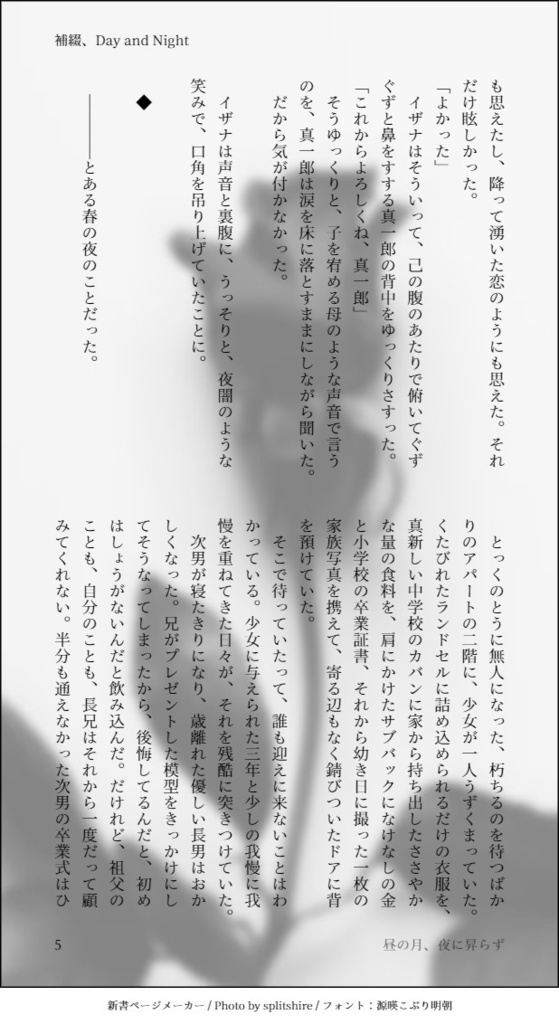 補綴、Day and Night
も思えたし、降って湧いた恋のようにも思えた。それ
だけ眩しかった。
「よかった」
イザナはそういって、己の腹のあたりで俯いてぐず
ぐずと鼻をすする真一郎の背中をゆっくりさすった。
「これからよろしくね、真一郎」
そうゆっくりと、子を宥める母のような声音で言う
のを、真一郎は涙を床に落とすままにしながら聞いた。
だから気が付かなかった。
イザナは声音と裏腹に、うっそりと、夜闇のような
笑みで、口角を吊り上げていたことに。
◆
――とある春の夜のことだった。
とっくのとうに無人になった、朽ちるのを待つばか
りのアパートの二階に、少女が一人うずくまっていた。
くたびれたランドセルに詰め込められるだけの衣服を、
真新しい中学校のカバンに家から持ち出したささやか
な量の食料を、肩にかけたサブバックになけなしの金
と小学校の卒業証書、それから幼き日に撮った一枚の
家族写真を携えて、寄る辺もなく錆びついたドアに背
を預けていた。
そこで待っていたって、誰も迎えに来ないことはわ
かっている。少女に与えられた三年と少しの我慢に我
慢を重ねてきた日々が、それを残酷に突きつけていた。
次男が寝たきりになり、歳離れた優しい長男はおか
しくなった。兄がプレゼントした模型をきっかけにし
てそうなってしまったから、後悔してるんだと、初め
はしょうがないんだと飲み込んだ。だけれど、祖父の
ことも、自分のことも、長兄はそれから一度だって顧
みてくれない。半分も通えなかった次男の卒業式はひ
5
昼の月、夜に昇らず
新書ページメーカー / Photo by splitshire / フォント：源暎こぶり明朝